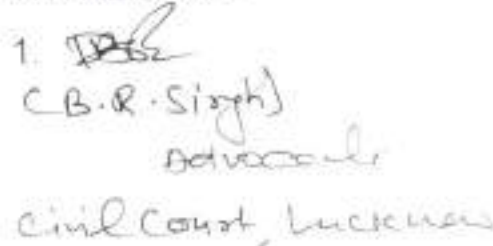 1.
(B.R. Singh)
Advocate
Civil Court, Lucknow